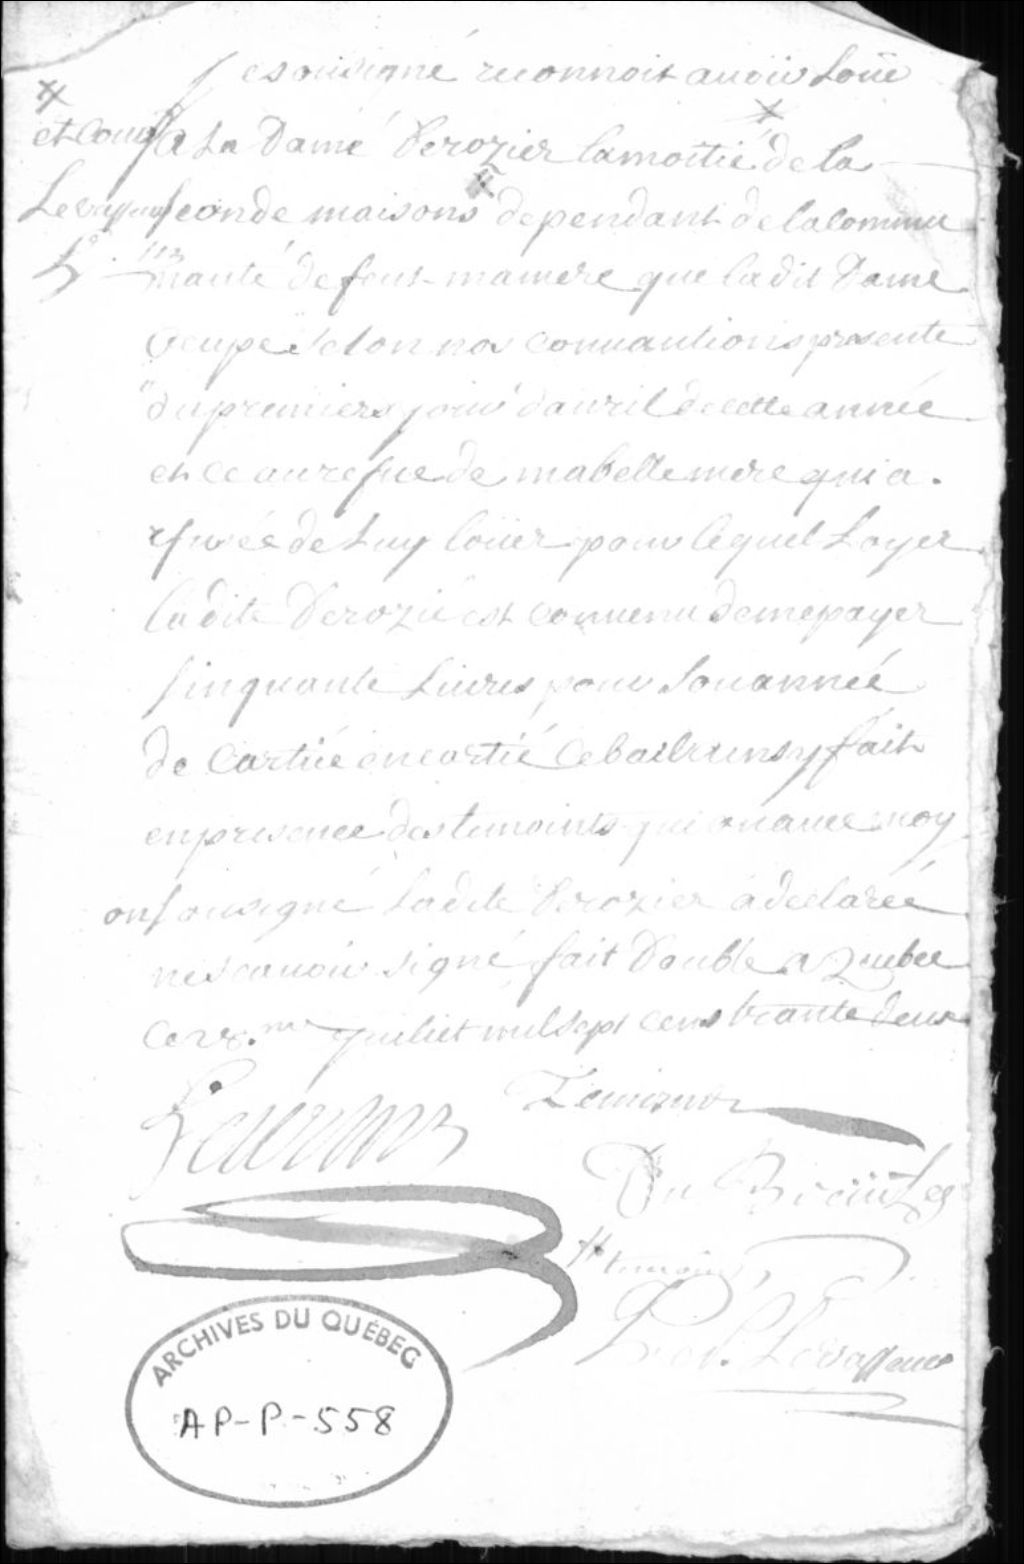 Je souvigné reconnoit auoiis Loüé
a La Dame Derozier lamoitié de la
seconde maisons dependant de lacommu
nauté defeut mamere que ladit Dame
ocupe selon nos conuantions presente
dupremiere jour dauril decette année
et ce aurefue de mabelle mere qui a
rfusée de Luy loüer pour lequel Loyer
ladite Derozié est conuenu demepayer
sinquante Liures pour Souannée
de cartié encartié cebail fait
enpresence destemoints qui auance moy
onsouvigné Ladite Derozier adeclarée
nescauoir signé fait Double a Quebec
ce juiliet mil sept cens trante deux
Temoint
temoint
Levasseur
ARCHIVES DU QUÉBEC
AP-P-558